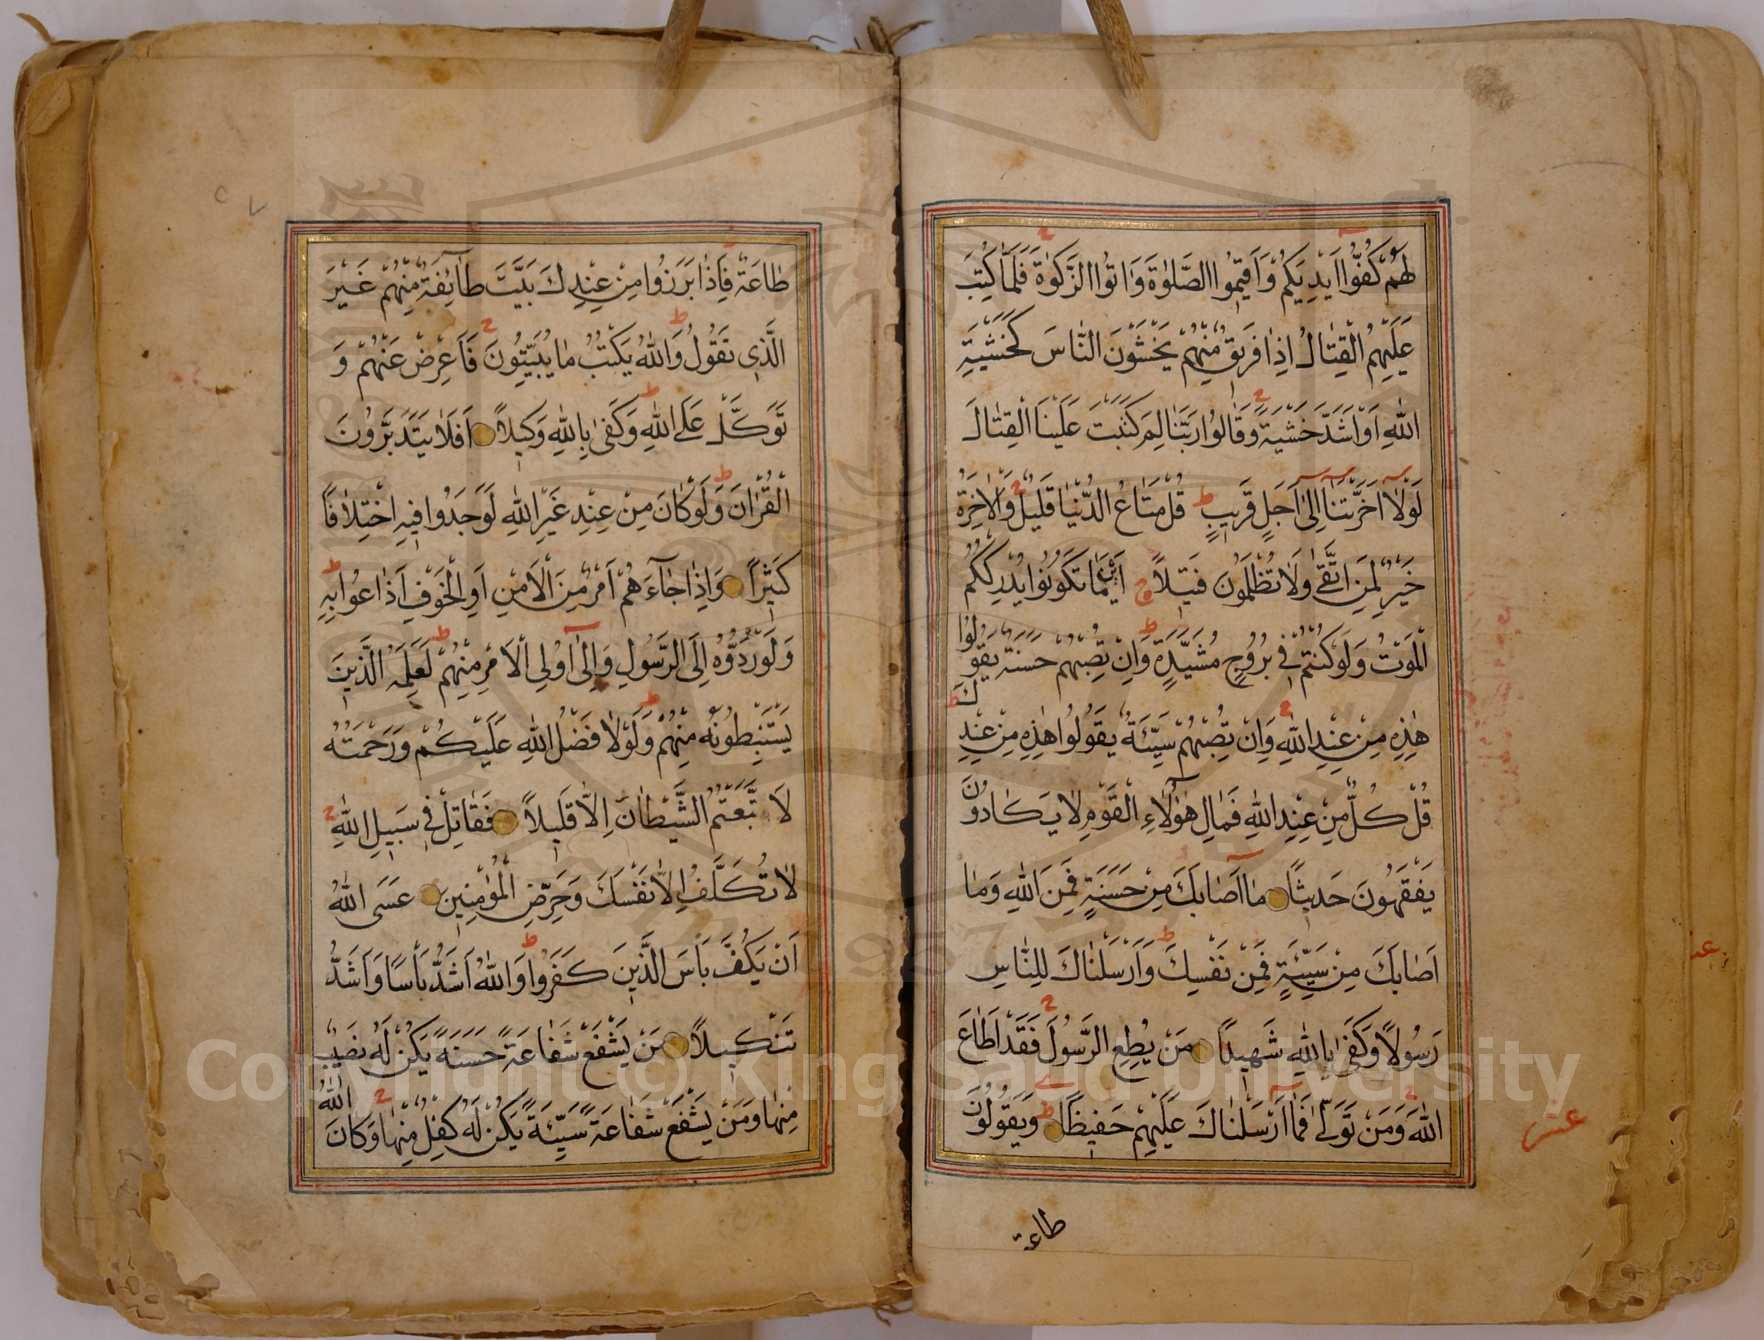 لَهُمْ كُفُّوا اَيْدِيَكُمْ وَاَقِيمُوا الصَّلٰوةَ وَاٰتُوا الزَّكٰوةَ فَلَمَّا كُتِبَ
عَلَيْهِمُ الْقِتَالُ اِذَا فَرِيقٌ مِنْهُمْ يَخْشَوْنَ النَّاسَ كَخَشْيَةِ
اللّٰهِ اَوْ اَشَدَّ خَشْيَةً وَقَالُوا رَبَّنَا لِمَ كَتَبْتَ عَلَيْنَا الْقِتَالَ
لَوْلَا اَخَّرْتَنَا اِلٰى اَجَلٍ قَرِيبٍ قُلْ مَتَاعُ الدُّنْيَا قَلِيلٌ وَالْاٰخِرَةُ
خَيْرٌ لِمَنِ اتَّقٰى وَلَا تُظْلَمُونَ فَتِيلًا اَيْنَمَا تَكُونُوا يُدْرِكْكُمُ
الْمَوْتُ وَلَوْ كُنْتُمْ فِى بُرُوجٍ مُشَيَّدَةٍ وَاِنْ تُصِبْهُمْ حَسَنَةٌ يَقُولُوا
هٰذِهِ مِنْ عِنْدِ اللّٰهِ وَاِنْ تُصِبْهُمْ سَيِّئَةٌ يَقُولُوا هٰذِهِ مِنْ عِنْدِكَ
قُلْ كُلٌّ مِنْ عِنْدِ اللّٰهِ فَمَالِ هٰؤُلَاءِ الْقَوْمِ لَا يَكَادُونَ
يَفْقَهُونَ حَدِيثًا مَا اَصَابَكَ مِنْ حَسَنَةٍ فَمِنَ اللّٰهِ وَمَا
اَصَابَكَ مِنْ سَيِّئَةٍ فَمِنْ نَفْسِكَ وَاَرْسَلْنَاكَ لِلنَّاسِ
رَسُولًا وَكَفٰى بِاللّٰهِ شَهِيدًا مَنْ يُطِعِ الرَّسُولَ فَقَدْ اَطَاعَ
اللّٰهَ وَمَنْ تَوَلّٰى فَمَا اَرْسَلْنَاكَ عَلَيْهِمْ حَفِيظًا وَيَقُولُونَ
عشر
طاعة
طَاعَةٌ فَاِذَا بَرَزُوا مِنْ عِنْدِكَ بَيَّتَ طَآئِفَةٌ مِنْهُمْ غَيْرَ
الَّذِى تَقُولُ وَاللّٰهُ يَكْتُبُ مَا يُبَيِّتُونَ فَاَعْرِضْ عَنْهُمْ وَ
تَوَكَّلْ عَلَى اللّٰهِ وَكَفٰى بِاللّٰهِ وَكِيلًا اَفَلَا يَتَدَبَّرُونَ
الْقُرْاٰنَ وَلَوْ كَانَ مِنْ عِنْدِ غَيْرِ اللّٰهِ لَوَجَدُوا فِيهِ اخْتِلَافًا
كَثِيرًا وَاِذَا جَآءَهُمْ اَمْرٌ مِنَ الْاَمْنِ اَوِ الْخَوْفِ اَذَاعُوا بِهِ
وَلَوْ رَدُّوهُ اِلَى الرَّسُولِ وَاِلٰى اُولِى الْاَمْرِ مِنْهُمْ لَعَلِمَهُ الَّذِينَ
يَسْتَنْبِطُونَهُ مِنْهُمْ وَلَوْلَا فَضْلُ اللّٰهِ عَلَيْكُمْ وَرَحْمَتُهُ
لَاتَّبَعْتُمُ الشَّيْطَانَ اِلَّا قَلِيلًا فَقَاتِلْ فِى سَبِيلِ اللّٰهِ
لَا تُكَلَّفُ اِلَّا نَفْسَكَ وَحَرِّضِ الْمُؤْمِنِينَ عَسَى اللّٰهُ
اَنْ يَكُفَّ بَاْسَ الَّذِينَ كَفَرُوا وَاللّٰهُ اَشَدُّ بَاْسًا وَاَشَدُّ
تَنْكِيلًا مَنْ يَشْفَعْ شَفَاعَةً حَسَنَةً يَكُنْ لَهُ نَصِيبٌ
مِنْهَا وَمَنْ يَشْفَعْ شَفَاعَةً سَيِّئَةً يَكُنْ لَهُ كِفْلٌ مِنْهَا وَكَانَ اللّٰهُ
Copyright © King Saud University
1957